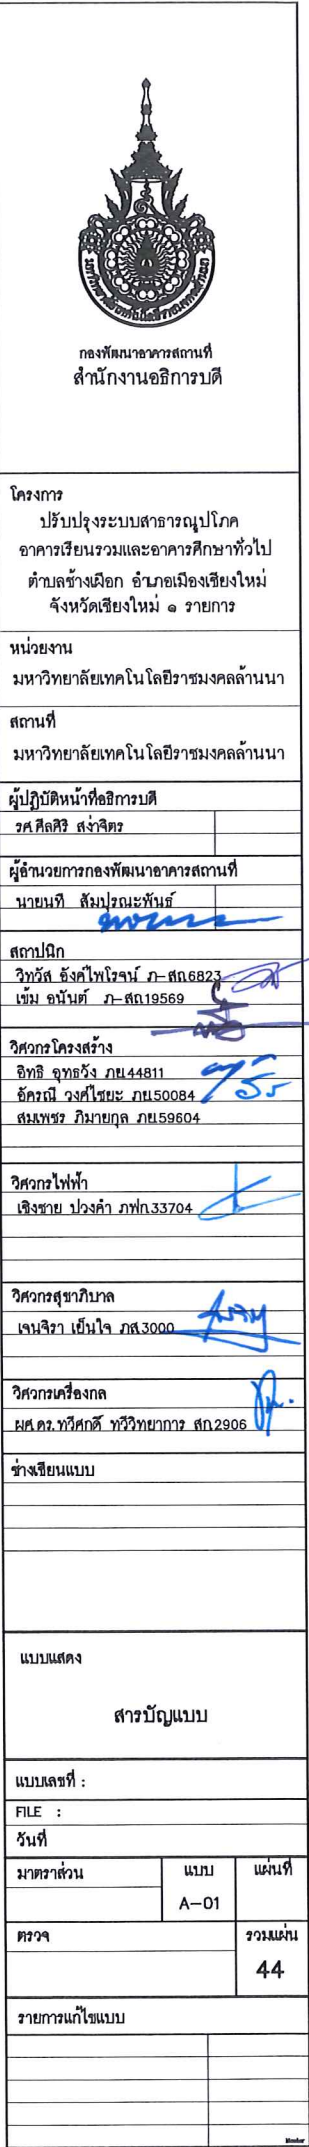 มหาวิทยาลัยเทคโนโลยีราชมงคลล้านนา
กองพัฒนาอาคารสถานที่
สำนักงานอธิการบดี
โครงการ
ปรับปรุงระบบสาธารณูปโภค
อาคารเรียนรวมและอาคารศึกษาทั่วไป
ตำบลช้างเผือก อำเภอเมืองเชียงใหม่
จังหวัดเชียงใหม่ ๑ รายการ
หน่วยงาน
มหาวิทยาลัยเทคโนโลยีราชมงคลล้านนา
สถานที่
มหาวิทยาลัยเทคโนโลยีราชมงคลล้านนา
ผู้ปฏิบัติหน้าที่อธิการบดี
รศ.ศีลศิริ สง่าจิตร
ผู้อำนวยการกองพัฒนาอาคารสถานที่
นายนที สัมปุรณะพันธ์
สถาปนิก
วิทวัส อังศ์ไพโรจน์ ภ-สถ.6823
เข้ม อนันต์ ภ-สถ.19569
วิศวกรโครงสร้าง
อิทธิ อุทธวัง ภย.44811
อัครณี วงศ์ไชยะ ภย.50084
สมเพชร ภิมายกุล ภย.59604
วิศวกรไฟฟ้า
เชิงชาย ปวงคำ ภฟก.33704
วิศวกรสุขาภิบาล
เจนจิรา เย็นใจ ภส.3000
วิศวกรเครื่องกล
ผศ.ดร.ทวีศกดิ์ ทวีวิทยาการ สก.2906
ช่างเขียนแบบ
แบบแสดง
สารบัญแบบ
แบบเลขที่ :
FILE :
วันที่
มาตราส่วน แบบ แผ่นที่
A-01
ตรวจ รวมแผ่น
44
รายการแก้ไขแบบ